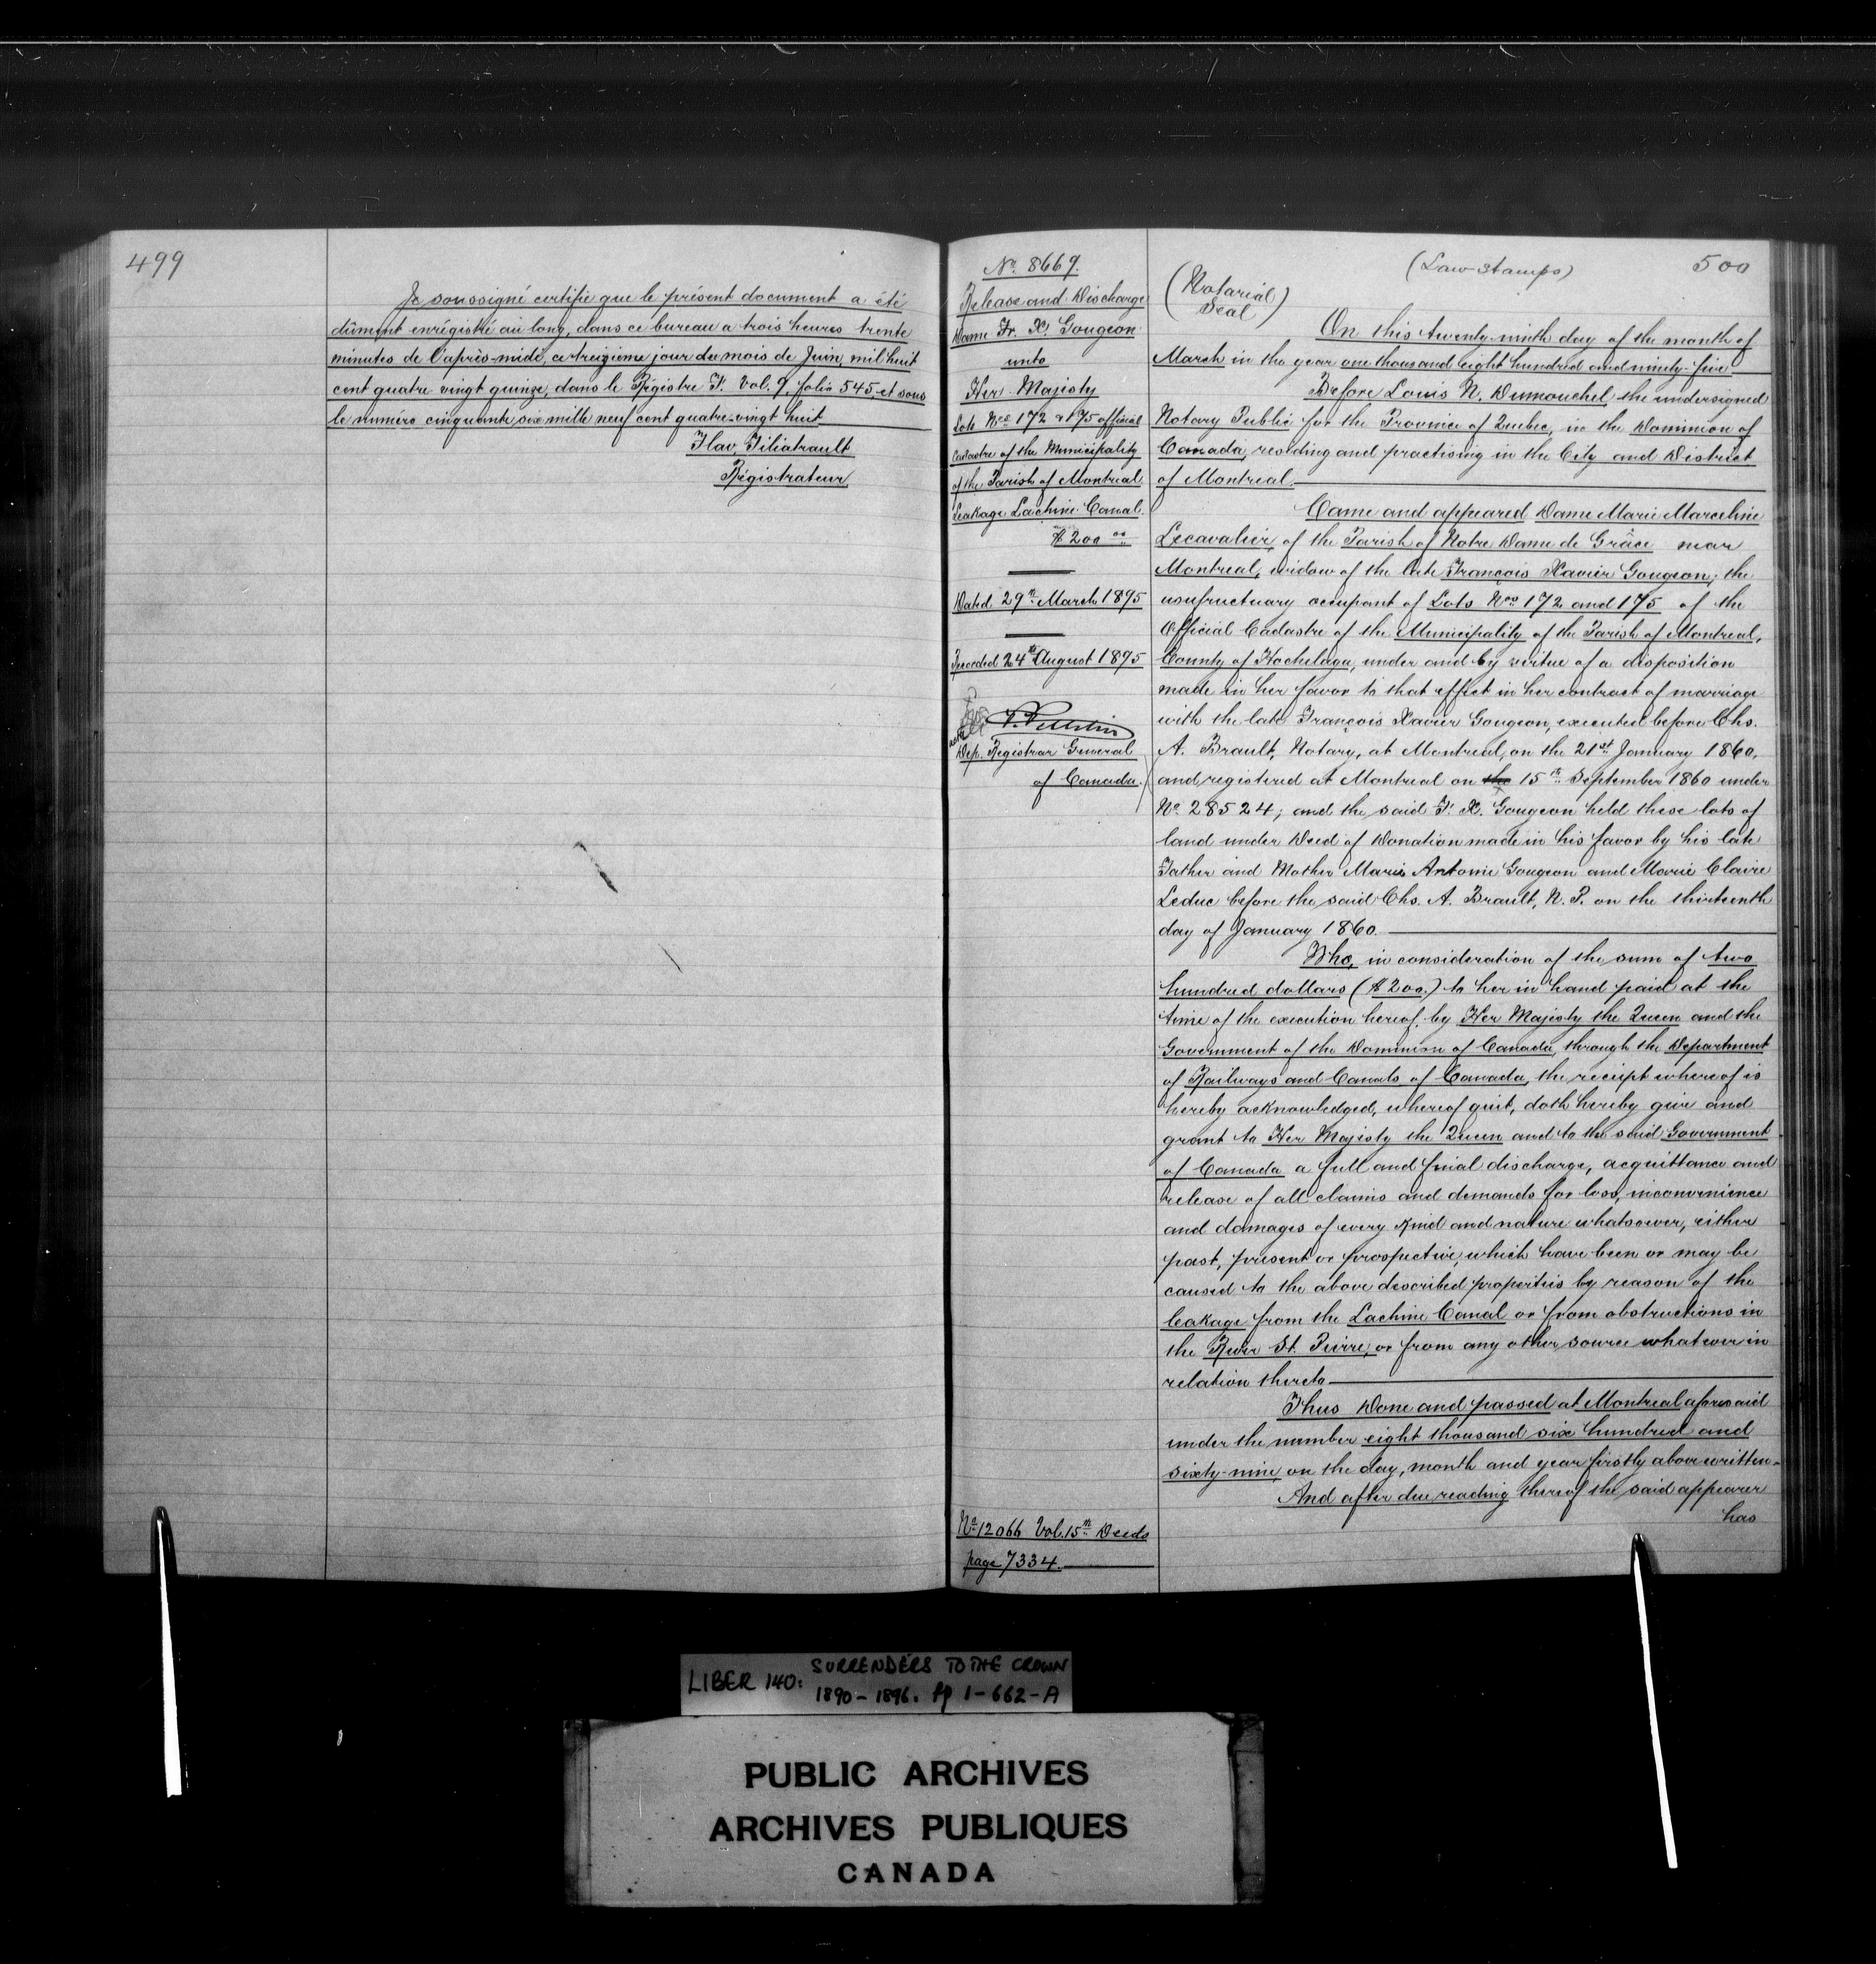 499
Je soussigné certifie que le présent document a été
dûment enrégistré au long, dans ce bureau a trois heures trente
minutes de l'après-midi, ce treizième jour du mois de Juin, mil huit
cent quatre vingt quinze, dans le Régistre F. Vol. 9, folio 545, et sous
le numéro cinquante six mille neuf cent quatre-vingt huit
Flav. Filiatrault
Régistrateur
No. 8669.
Release and Discharge
Dame Fr. X. Gougeon
unto
Her Majesty
Lots Nos 172 & 175 official
Cadastre of the Municipality
of the Parish of Montreal
Leakage Lachine Canal.
$200 00
Dated 29th March 1895
Recorded 24th August 1895
Dep. Registrar General
of Canada.
No 12066 Vol. 15th Deeds
page 7334.
(Law Stamps)
500
(Notarial
Seal)
On this twenty-ninth day of the month of
March in the year one thousand eight hundred and ninety-five
Before Louis N. Dumouchel, the undersigned
Notary Public for the Province of Quebec, in the Dominion of
Canada, residing and practising in the City and District
of Montreal.
Came and appeared Dame Marie Marceline
Lecavalier, of the Parish of Notre Dame de Grâce near
Montreal, widow of the late François Xavier Gougeon, the
usufructuary occupant of Lots Nos 172 and 175 of the
Official Cadastre of the Municipality of the Parish of Montreal,
County of Hochelaga, under and by virtue of a disposition
made in her favor to that effect in her contract of marriage
with the late François Xavier Gougeon, executed before Chs.
A. Brault, Notary, at Montreal, on the 21st January 1860,
and registered at Montreal on the 15th September 1860 under
No 28524; and the said F. X. Gougeon held these lots of
land under Deed of Donation made in his favor by his late
Father and Mother Marie Antoine Gougeon and Marie Claire
Leduc before the said Chs. A. Brault, N. P. on the thirteenth
day of January 1860.
Who, in consideration of the sum of two
hundred dollars ($200.) to her in hand paid at the
time of the execution hereof, by Her Majesty the Queen and the
Government of the Dominion of Canada, through the Department
of Railways and Canals of Canada, the receipt whereof is
hereby acknowledged, whereof quit, doth hereby give and
grant to Her Majesty the Queen and to the said Government
of Canada a full and final discharge, acquittance and
release of all claims and demands for loss, inconvenience
and damages of every kind and nature whatsoever, either
past, present or prospective, which have been or may be
caused to the above described properties by reason of the
leakage from the Lachine Canal or from obstructions in
the River St. Pierre, or from any other source whatever in
relation thereto
Thus Done and passed at Montreal aforesaid
under the number eight thousand six hundred and
sixty-nine, on the day, month and year firstly above written.
And after due reading thereof the said appearer
has
LIBER 140: SURRENDERS TO THE CROWN
1890-1896. pp 1-662-A
PUBLIC ARCHIVES
ARCHIVES PUBLIQUES
CANADA